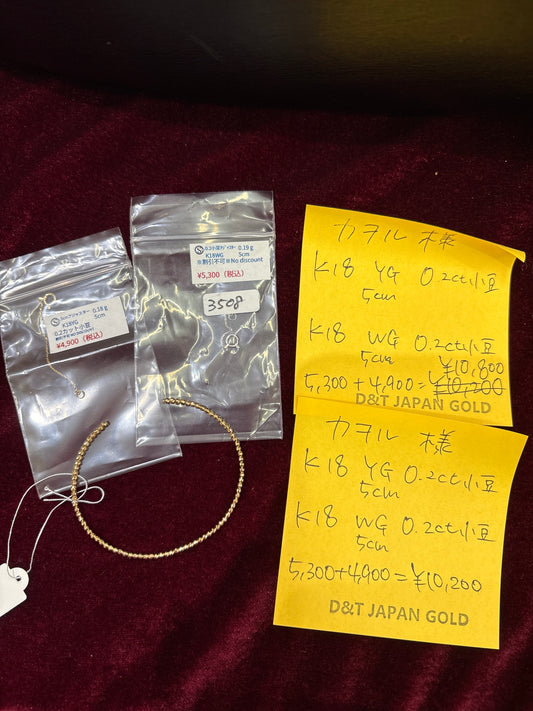 5cmアジャスター 0.18g
K18YG 5cm
0.2カット小豆
¥4,900 (税込)
0.19g
K18WG 5cm
※割引不可※No discount
¥5,300 (税込)
3508
カヲル 様
K18 YG 0.2ct小豆
5cm
K18 WG 0.2ct小豆
5cm
¥10,800
5,300+4,900=¥10,200
D&T JAPAN GOLD
カヲル 様
K18 YG 0.2ct小豆
5cm
K18 WG 0.2ct小豆
5cm
5,300+4,900=¥10,200
D&T JAPAN GOLD